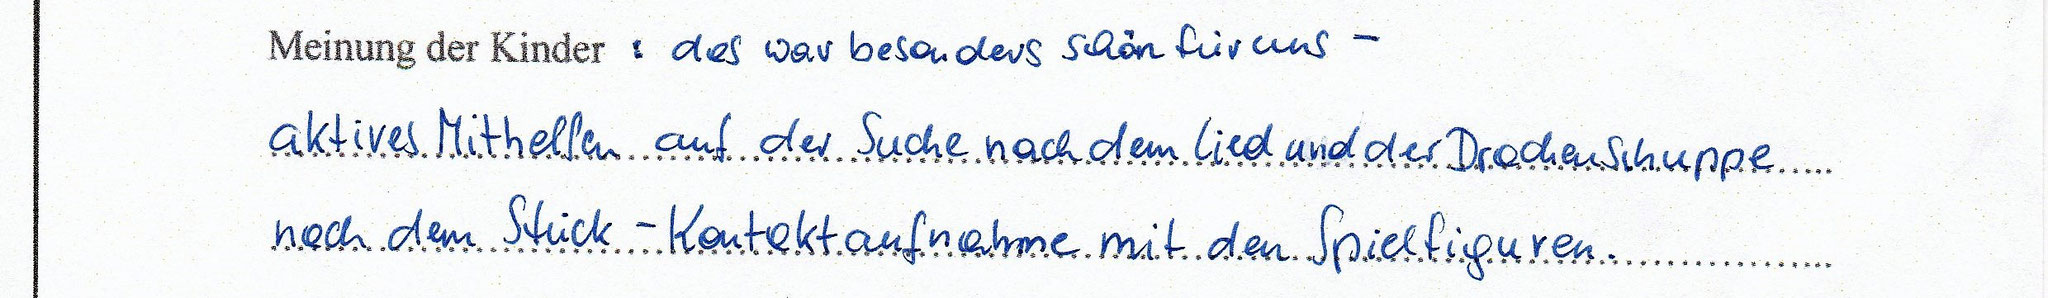 Meinung der Kinder : das war besonders schön für uns –
aktives Mithelfen auf der Suche nach dem Lied und der Drachenschuppe
nach dem Stück – Kontaktaufnahme mit den Spielfiguren.